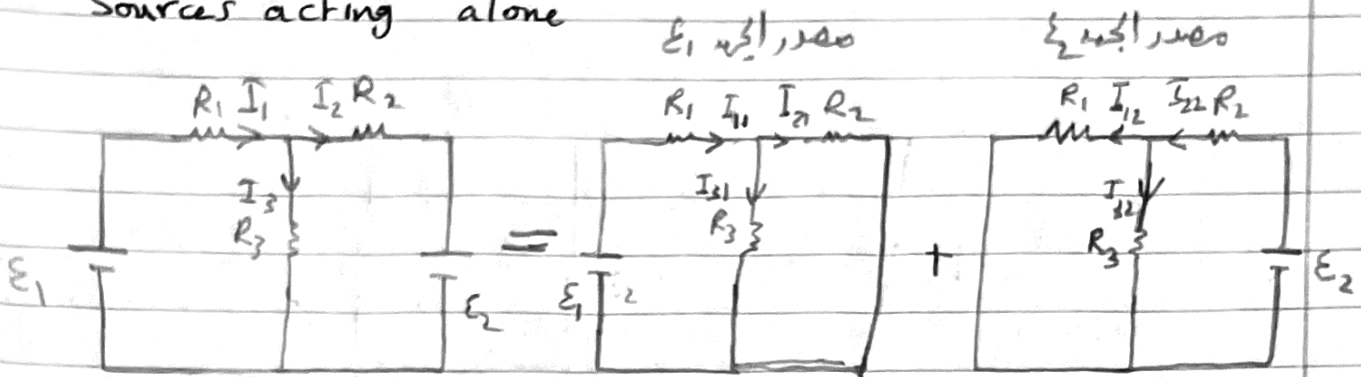 Sources acting alone
مصدر الجهد ε₁
مصدر الجهد ε₂
R₁ I₁ I₂ R₂
I₃
R₃
ε₁
ε₂
=
R₁ I₁₁ I₂₁ R₂
I₃₁
R₃
ε₁
+
R₁ I₁₂ I₂₂ R₂
I₃₂
R₃
ε₂